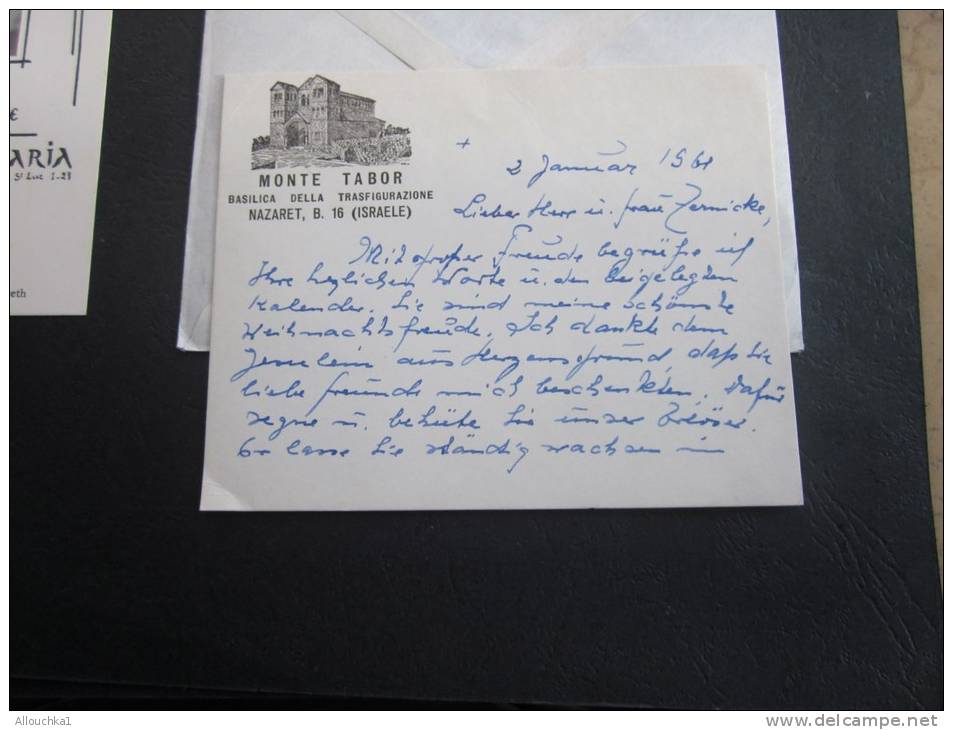 E
ARIA
St Luc 1-28
eth
MONTE TABOR
BASILICA DELLA TRASFIGURAZIONE
NAZARET, B. 16 (ISRAELE)
+
2 Januar 1961
Lieber Herr u. Frau Zernicke,
Mit großer Freude begrüße ich
Ihre herzlichen Worte u. den beigelegten
Kalender. Sie sind meine schönste
Weihnachtsfreude. Ich dankte dem
Jesulein aus Herzensgrund daß Sie
liebe Freunde mich beschenkten. Dafür
segne u. behüte Sie unser Erlöser.
Er lasse Sie ständig wachsen in
Allouchka1
www.delcampe.net